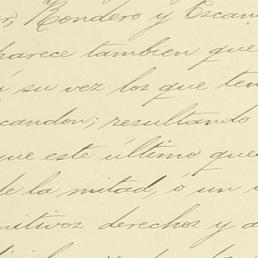 Rondero y Escan
parece tambien que
á su vez los que ten
candon; resultando
que este último que
de la mitad, ó un
nitivos derechos y a